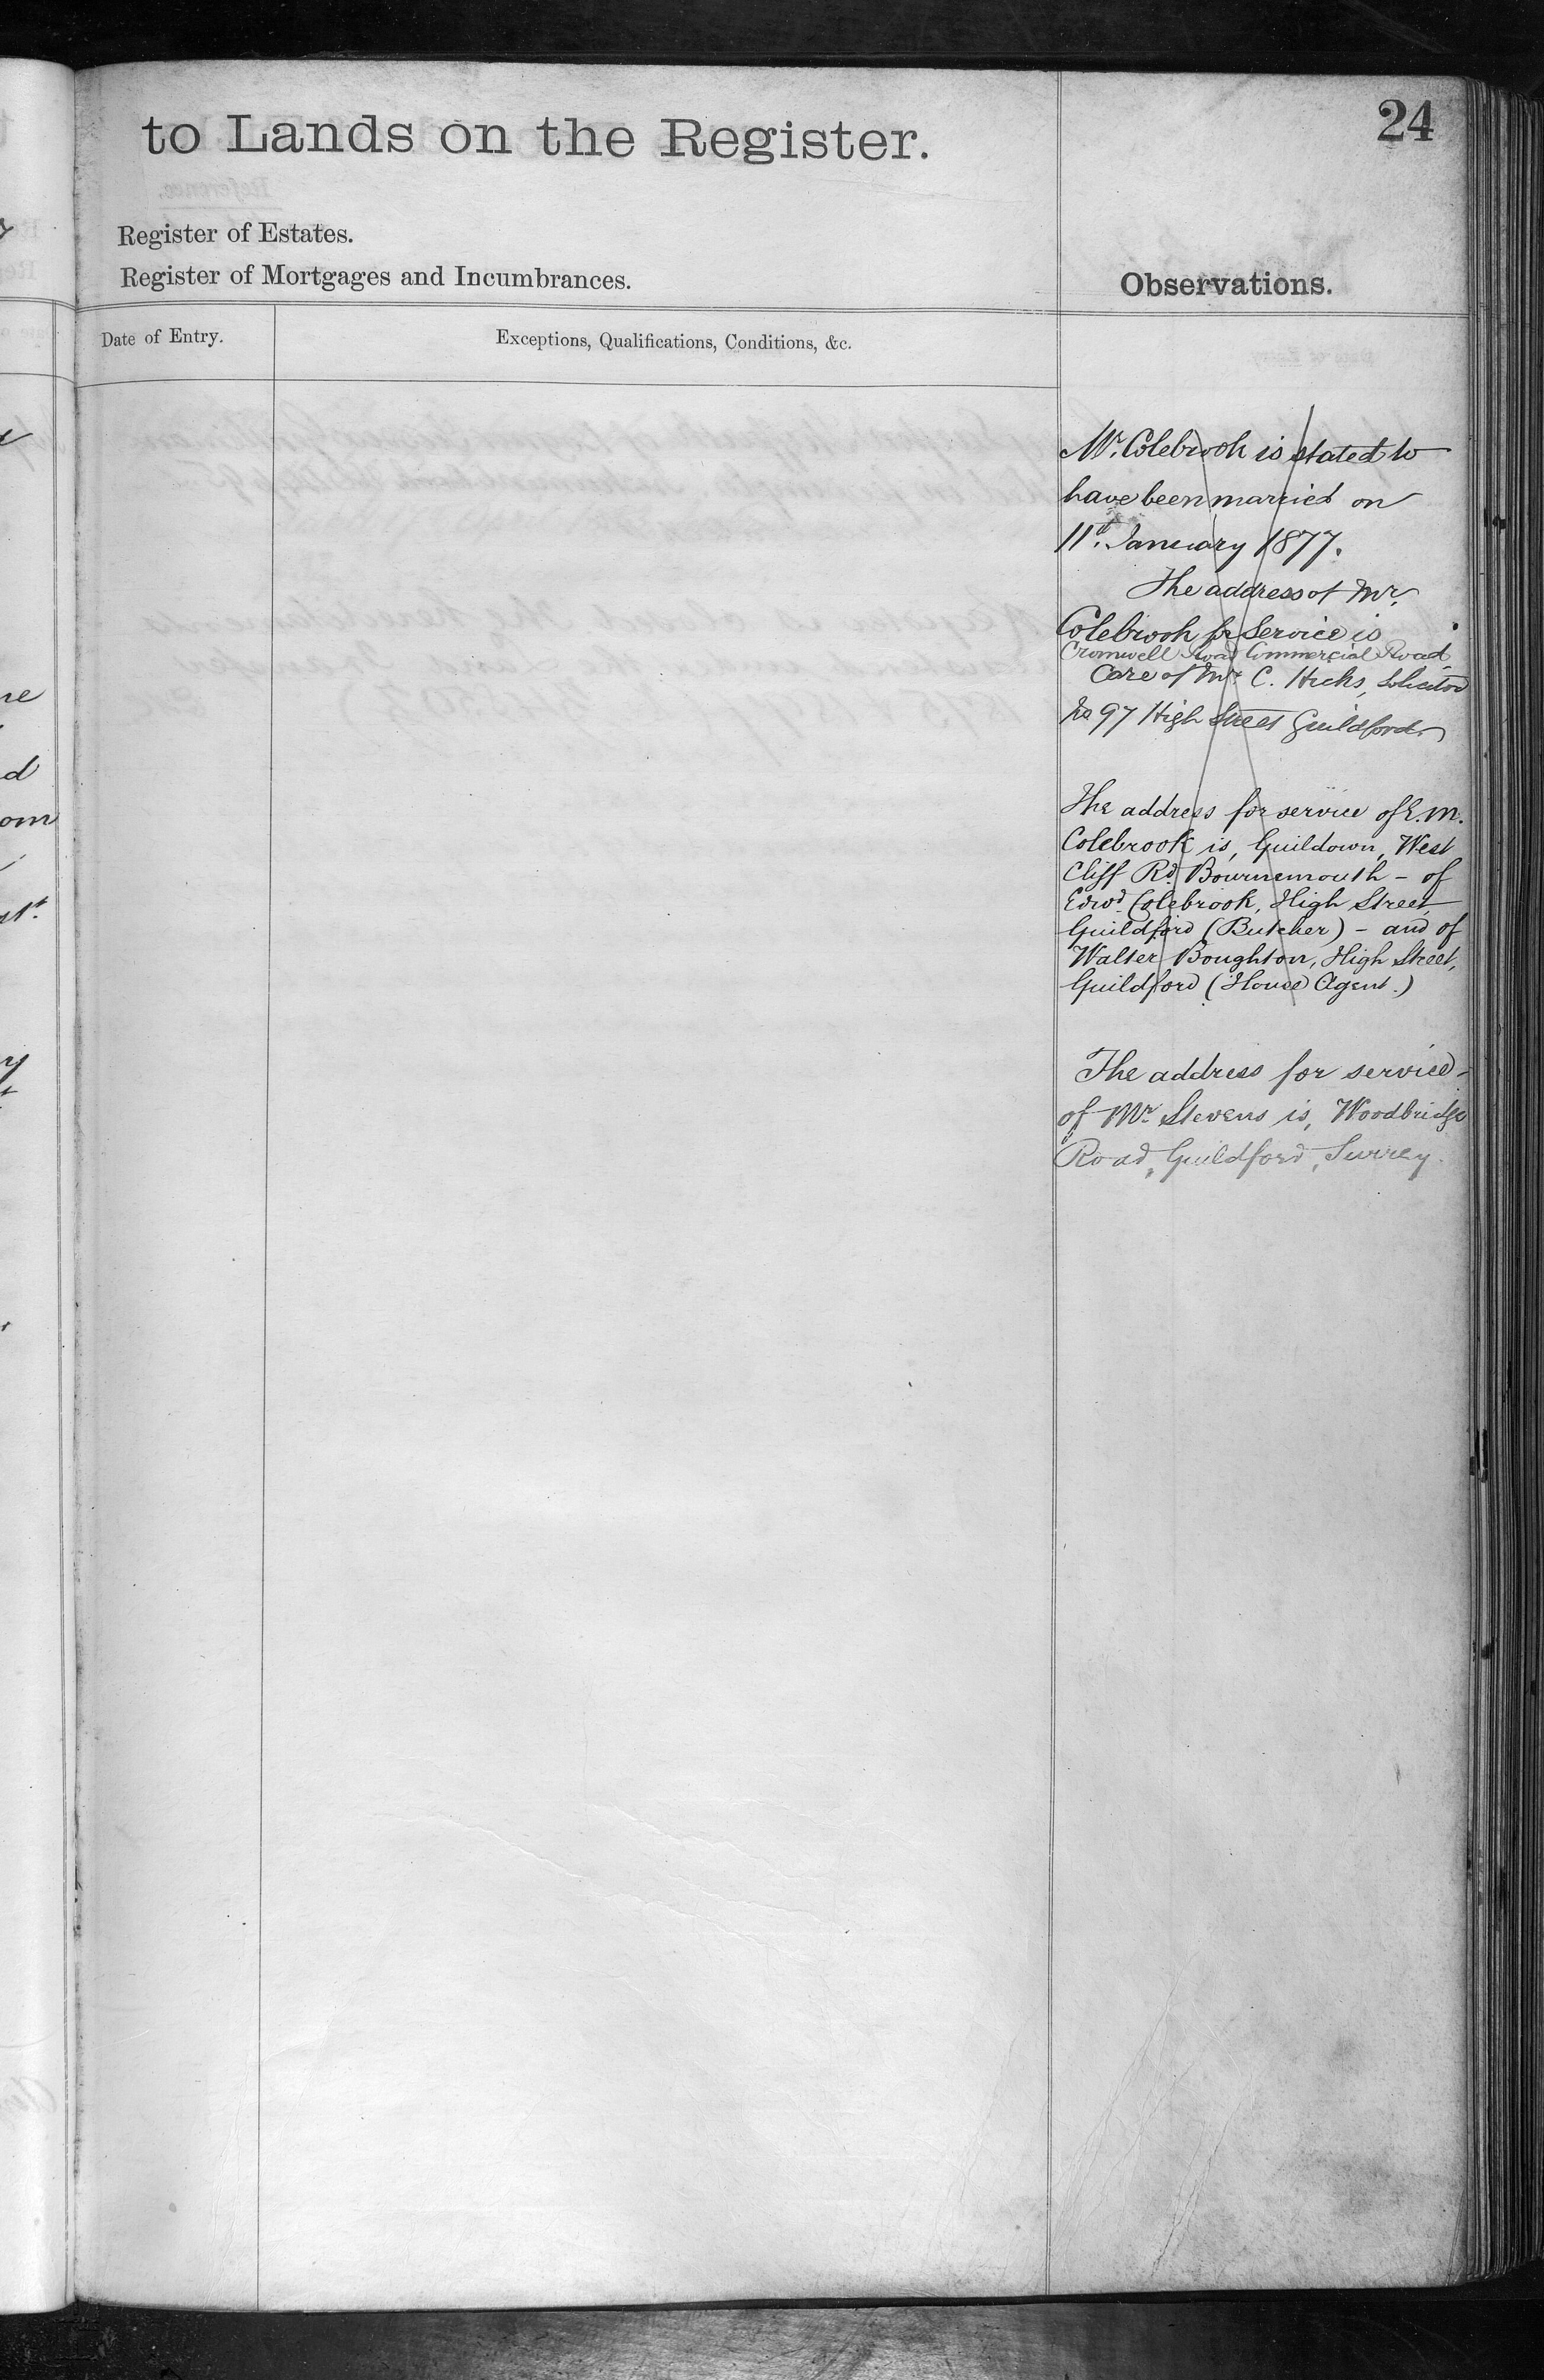 24
to Lands on the Register.
Register of Estates.
Register of Mortgages and Incumbrances.
Observations.
Date of Entry.
Exceptions, Qualifications, Conditions, &c.
Mr. Colebrook is stated to
have been married on
11th. January 1877.
The address of Mr.
Colebrook for Service is
Cromwell Road Commercial Road
Care of Mr. C. Hicks, Solicitor
No 97 High Street Guildford.
The address for service of E. M.
Colebrook is, Guildown, West
Cliff Rd. Bournemouth - of
Edwd. Colebrook, High Street
Guildford (Butcher) - and of
Walter Boughton, High Street,
Guildford (House Agent.)
The address for service
of Mr. Stevens is, Woodbridge
Road, Guildford, Surrey.